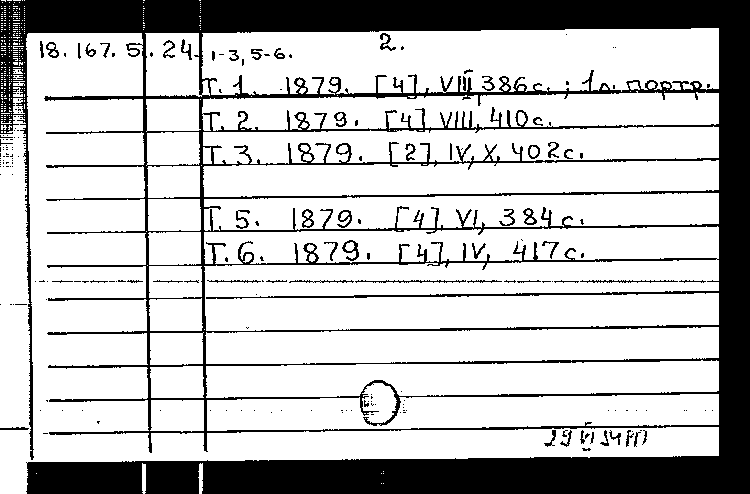 18.167.5.24. 1-3, 5-6.
2.
Т. 1. 1879. [4], VIII, 386 с. ; 1 л. портр.
Т. 2. 1879. [4], VIII, 410 с.
Т. 3. 1879. [2], IV, X, 402 с.
Т. 5. 1879. [4], VI, 384 с.
Т. 6. 1879. [4], IV, 417 с.
29 VI